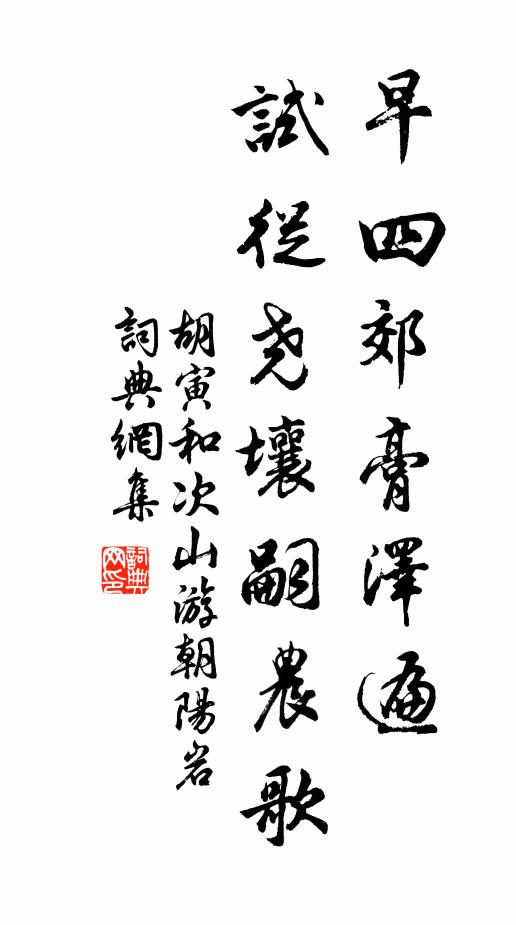 早四郊膏澤遍
試從尧壤嗣農歌
胡寅和次山游朝陽岩
詞典網集
詞典网印